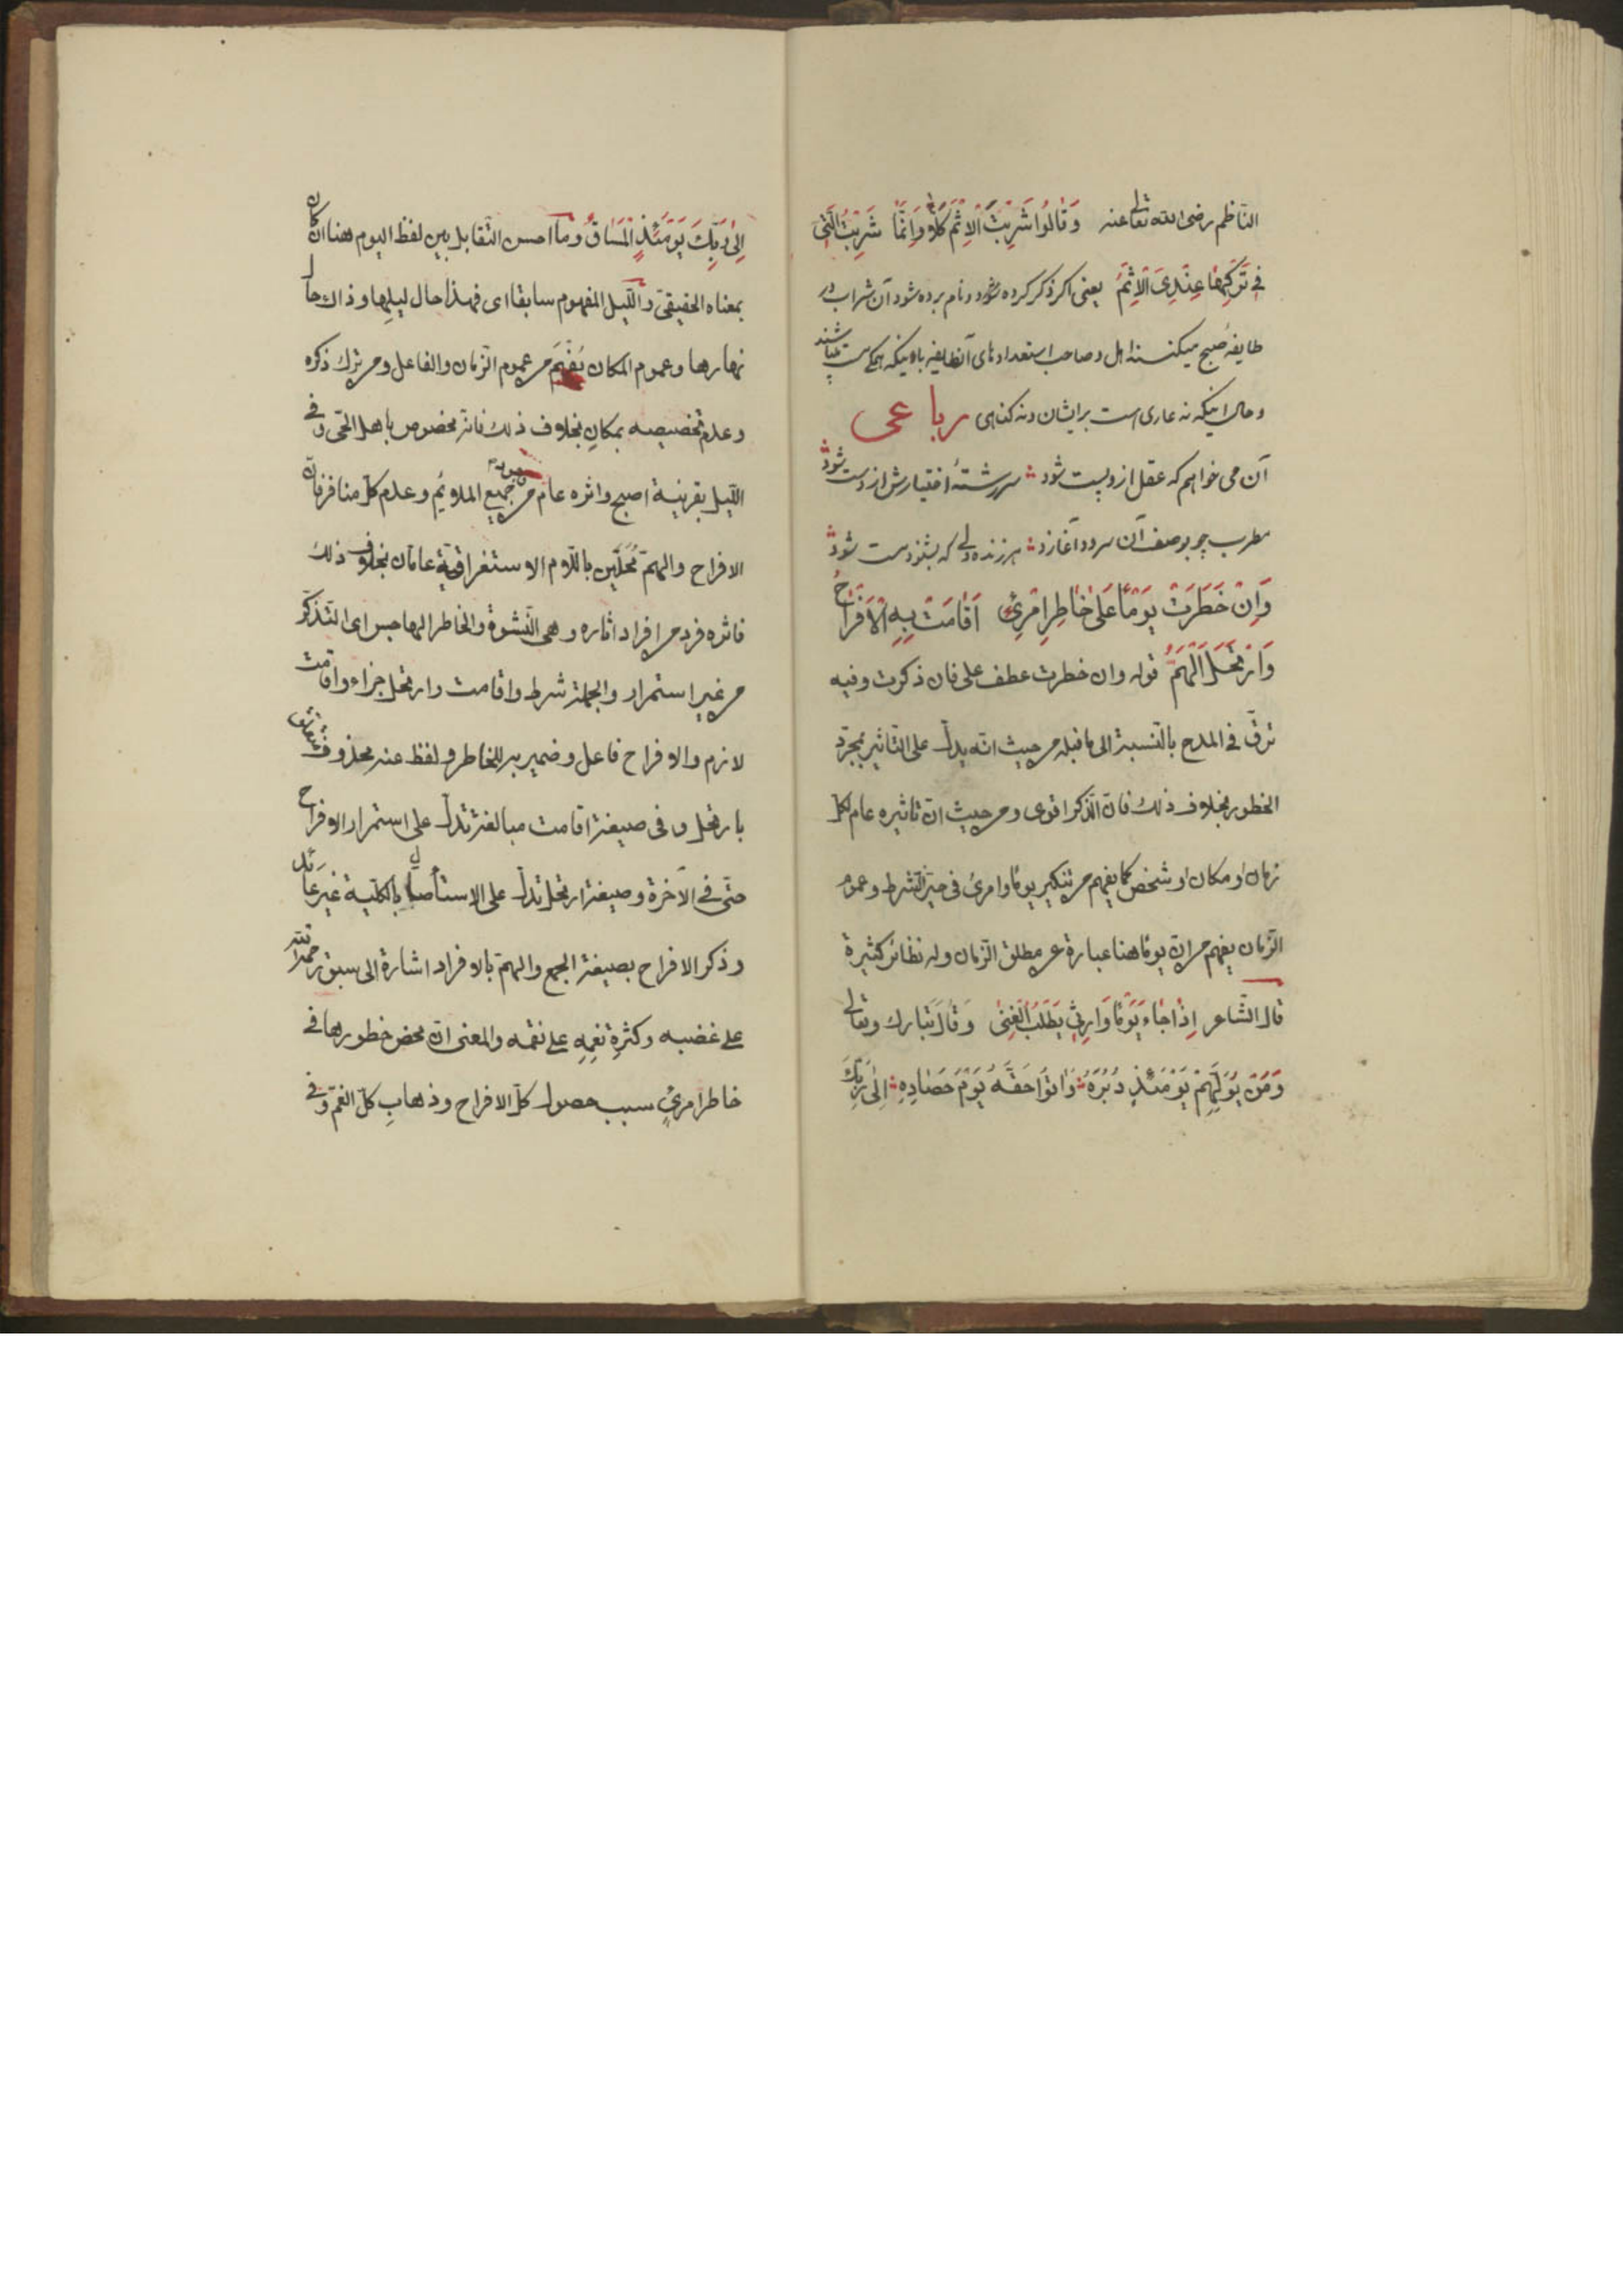 الناظم رضی الله تعالی عنه وَقَالُوا شَرِبْتَ الْاِثْمَ كَلَّا وَاِنَّمَا شَرِبْتُ الَّتِی
فِی تَرْكِهَا عِنْدِیَ الْاِثْمُ یعنی اکر ذکر کرده شود ونام برده شود آن شراب در
طایفه صبح میکنند اهل وصاحب استعدادهای آنطایفه باوینکه همکی مست میباشند
وحال اینکه نه عاری است برایشان ونه کناهی رباعی
آن می خواهم که عقل ازو پست شود سررشتهٔ اختیارش از دست شود
مطرب چو بوصف آن سرود آغازد هر زنده دلی که بشنود مست شود
وَاِنْ خَطَرَتْ یَوْمًا عَلٰی خَاطِرِ امْرِئٍ اَقَامَتْ بِهِ الْاَفْرَاحُ
وَارْتَحَلَ الْهَمُّ قوله وان خطرت عطف علی فان ذكرت وفیه
ترقّ فی المدح بالنسبة الی ما قبله من حیث انّه یدلّ علی التاثیر بمجرّد
الخطور بخلاف ذلك فان الذّكر اقوی ومن حیث انّ تاثیره عام لكلّ
زمان او مكان او شخص كما یفهم من تنكیر یوما وامرئ فی حیّز الشرط وعموم
الزّمان یفهم من انّ یوما هنا عبارة عن مطلق الزّمان وله نظائر كثیرة
قال الشّاعر اِذَا جَاءَ یَوْمًا وَارِثِی یَطْلُبُ الْغِنٰی وَقَالَ تبارك وتعالی
وَمَنْ یُوَلِّهِمْ یَوْمَئِذٍ دُبُرَهُ وَاٰتُوا حَقَّهُ یَوْمَ حَصَادِهِ اِلٰی رَبِّكَ
اِلٰی رَبِّكَ یَوْمَئِذٍ الْمَسَاقُ وما احسن التّقابل بین لفظ الیوم هنا ان كان
بمعناه الحقیقیّ واللّیل المفهوم سابقا ای فهذا حال لیلها وذاك حال
نهارها وعموم المكان یُفْهَم من عموم الزّمان والفاعل ومن ترك ذكره
وعدم تخصیصه بمكان بخلاف ذلك فانه مخصوص باهل الحیّ وفی
اللّیل بقرینة اصبح واثره عام من جمیع الملائم وعدم كلّ منافر فانّ
الافراح والهمّ مُحَلَّیَین باللّام الاستغراقیّة عامّان بخلاف ذلك
فاثره فرد من افراد اثاره وهی النّشوة والخاطر الهاجس ای التّذكّر
من غیر استمرار والجملة شرط واقامت وارتحل جزاء واقامت
لازم والافراح فاعل وضمیر به للخاطر ولفظ عنه محذوف متعلّق
بارتحل وفی صیغة اقامت مبالغة تدلّ علی استمرار الافراح
حتّی فی الآخرة وصیغة ارتحل تدلّ علی الاستأصال بالكلّیة غیر عائد
وذكر الافراح بصیغة الجمع والهمّ بالافراد اشارة الی سبق رحمته
علی غضبه وكثرةِ نعمه علی نقمه والمعنی انّ محض خطورها فی
خاطر امرئٍ سبب حصول كلّ الافراح وذهابِ كلّ الغمّ وفی